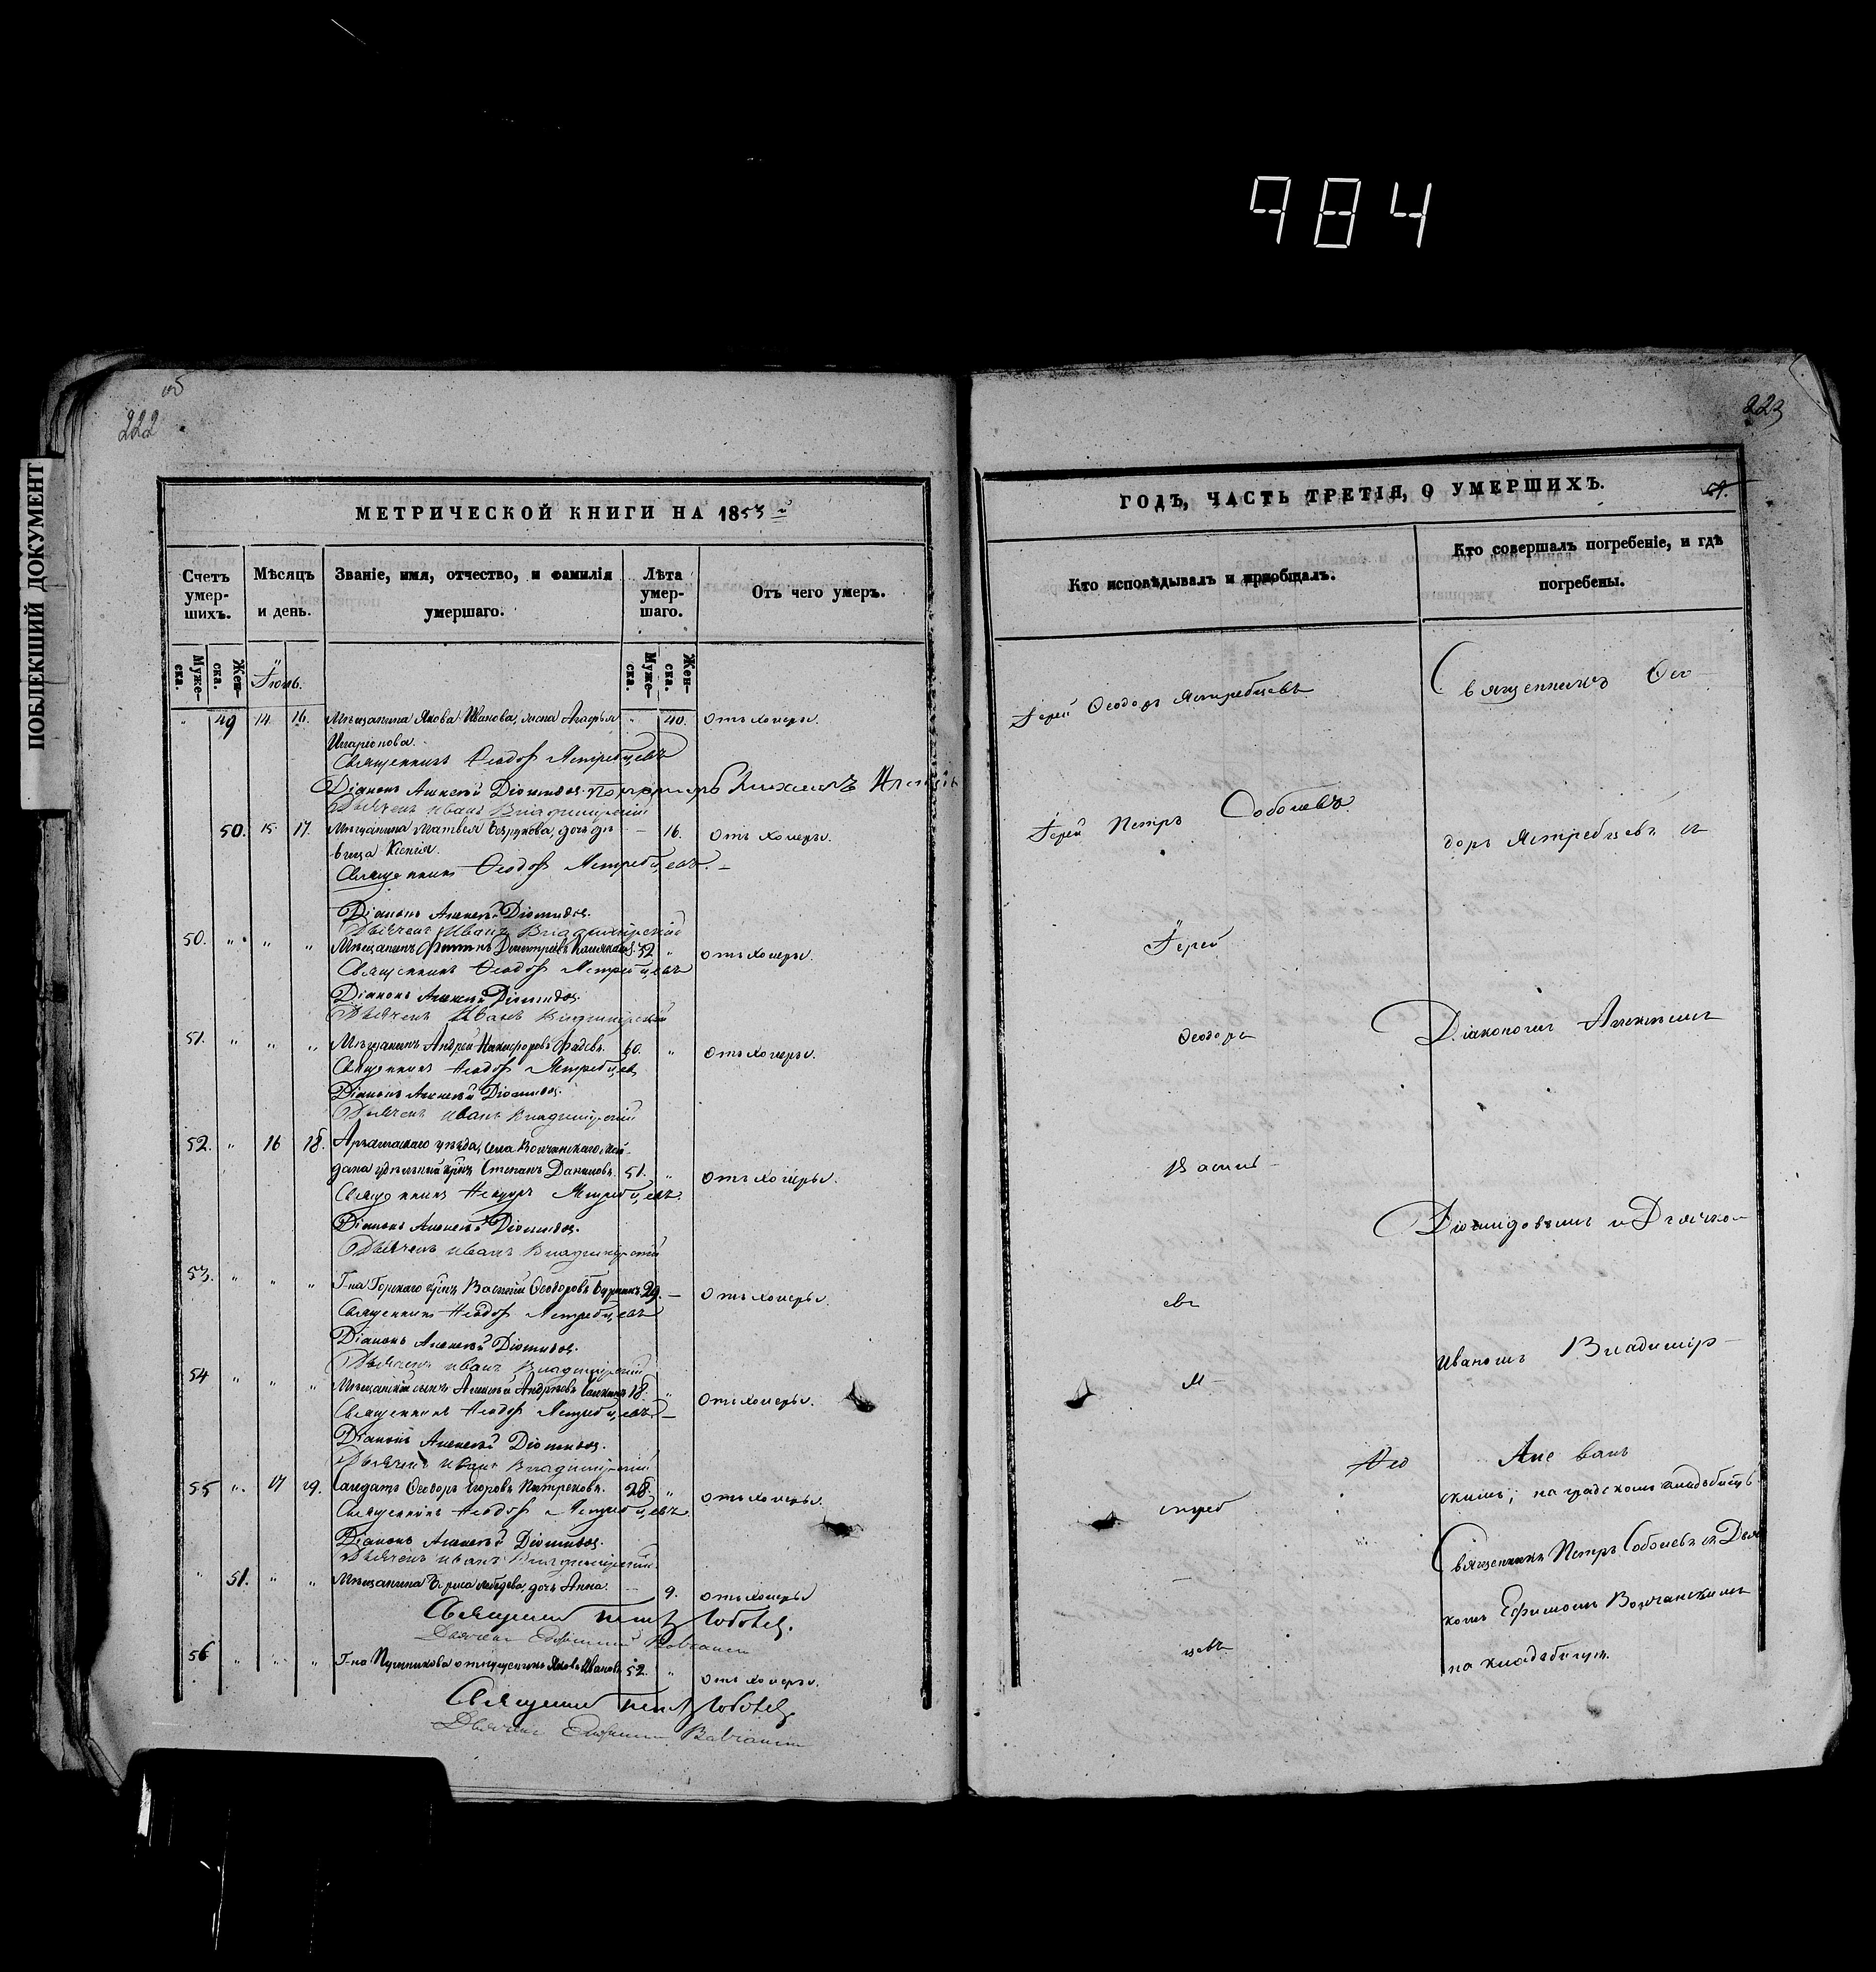 984
ПОБЛЕКШИЙ ДОКУМЕНТ
об
222
223
МЕТРИЧЕСКОЙ КНИГИ НА 1853й
ГОДЪ, ЧАСТЬ ТРЕТІЯ, О УМЕРШИХЪ.
Счетъ умер-шихъ.
Мѣсяцъ и день.
Званіе, имя, отчество, и фамилія умершаго.
Лѣта умер-шаго.
Отъ чего умеръ.
Муже-ска.
Жен-ска.
Іюнь.
Муже-ска.
Жен-ска.
" 49 14 16. Мѣщанина Якова Иванова, жена Агафья " 40. отъ холеры.
Иларіонова.
Священникъ Ѳеодоръ Ястребцевъ
Діаконъ Алексѣй Діомидов
Дьячекъ Иванъ Владимірскій
50. 15. 17. Мѣщанина Матвѣя дочь дѣ- — 16. Отъ холеры.
вица Ксенія.
Священникъ Ѳеодоръ Ястребцевъ.
Діаконъ Алексѣй Діомидов
Дьячекъ Иванъ Владимірскій
50. " " " Мѣщанинъ Дмитріевъ 52 " отъ холеры.
Священникъ Ѳеодоръ Ястребцевъ
Діаконъ Алексѣй Діомидов
Дьячекъ Иванъ Владимірскій
51. " " " Мѣщанинъ Андрей Никифоровъ Фадѣевъ. 60. " Отъ холеры.
Священникъ Ѳеодоръ Ястребцевъ
Діаконъ Алексѣй Діомидов
Дьячекъ Иванъ Владимірскій
52. " 16 18. Арзамаскаго уѣзда, села Волчанскаго май-
дана удѣльный крес. Степанъ Даниловъ. 51. " Отъ холеры.
Священникъ Ѳеодоръ Ястребцевъ
Діаконъ Алексѣй Діомидов
Дьячекъ Иванъ Владимірскій
53. " " " Г-на Горскаго Василій Ѳеодоровъ 29. — Отъ холеры.
Священникъ Ѳеодоръ Ястребцевъ
Діаконъ Алексѣй Діомидов
Дьячекъ Иванъ Владимірскій
54 " " " Мѣщанскій сынъ Алексѣй Андреевъ 18. " Отъ холеры.
Священникъ Ѳеодоръ Ястребцевъ
Діаконъ Алексѣй Діомидов
Дьячекъ Иванъ Владимірскій
55 " 17 19. Салдатъ Ѳеодоръ Егоровъ 28. " отъ холеры.
Священникъ Ѳеодоръ Ястребцевъ
Діаконъ Алексѣй Діомидов
Дьячекъ Иванъ Владимірскій
" 51. " " Мѣщанина дочь Анна. — 9. отъ холеры
Священникъ Петръ Соболев
Дьячекъ Ефимій
56 " " " Г-на Яковъ Ивановъ 52. " отъ холеры.
Священникъ Петръ Соболев
Дьячекъ Ефимій
Кто исповѣдывалъ и пріобщалъ.
Іерей Ѳеодоръ Ястребцевъ
Іерей Петръ Соболевъ
Іерей
Ѳеодоръ
Василь-
евъ
Я-
стреб
-
цевъ
Кто совершалъ погребеніе, и гдѣ погребены.
Священникъ Ѳео-
доръ Ястребцевъ съ
Діакономъ Алексѣемъ
Діомидовымъ и Дьячко-
Иваномъ Владимір-
скимъ; на градскомъ кладбищѣ
Священникъ Петръ Соболевъ съ Дьяч
комъ Ефимомъ Волчанскимъ
на кладбищѣ.